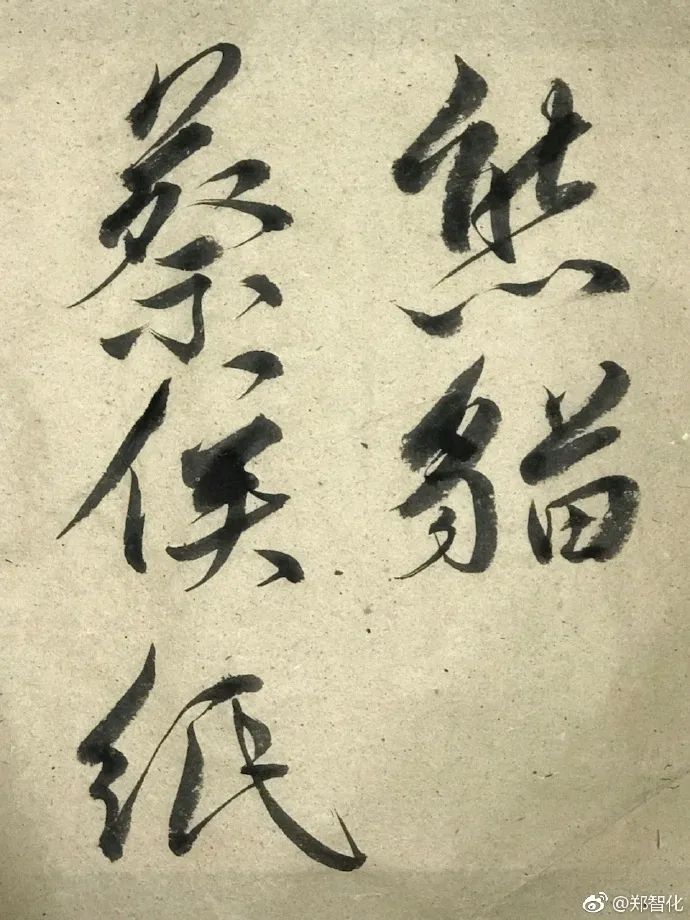 熊貓
蔡侯纸
@郑智化